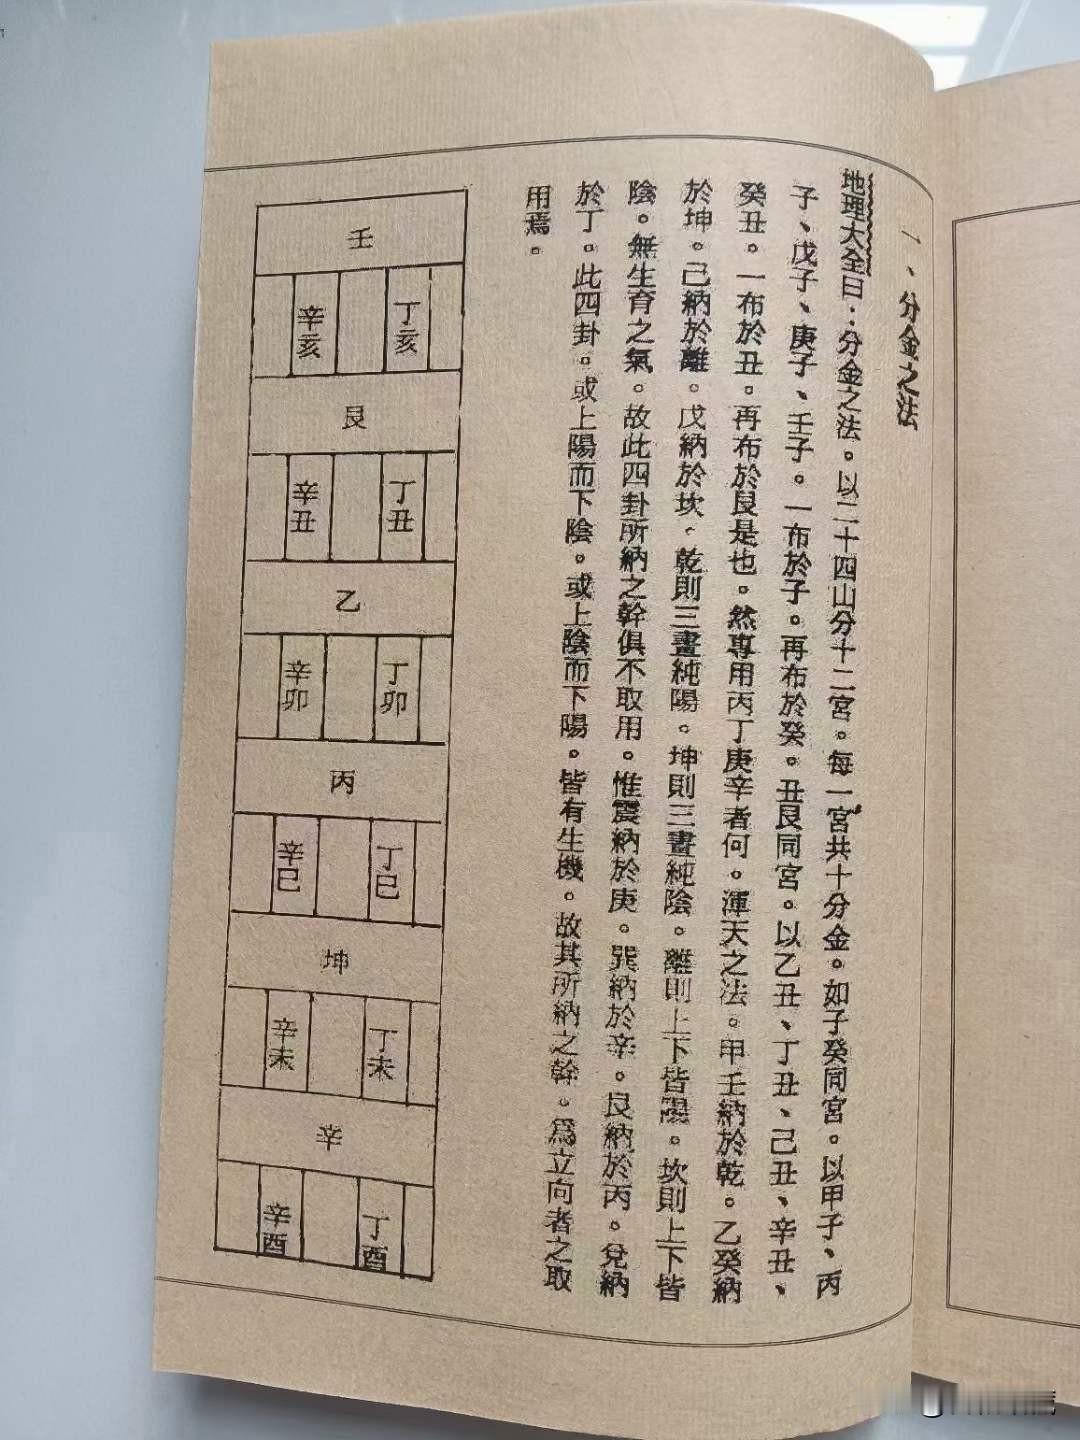 一、分金之法
地理大全曰：分金之法。以二十四山分十二宮。每一宮共十分金。如子癸同宮。以甲子、丙
子、戊子、庚子、壬子。一布於子。再布於癸。丑艮同宮。以乙丑、丁丑、己丑、辛丑、
癸丑。一布於丑。再布於艮是也。然專用丙丁庚辛者何。渾天之法。甲壬納於乾。乙癸納
於坤。己納於離。戊納於坎、乾則三畫純陽。坤則三畫純陰。離則上下皆陽。坎則上下皆
陰。無生育之氣。故此四卦所納之幹俱不取用。惟震納於庚。巽納於辛。艮納於丙。兌納
於丁。此四卦。或上陽而下陰。或上陰而下陽。皆有生機。故其所納之幹。為立向者之取
用焉。
壬
丁亥
辛亥
艮
丁丑
辛丑
乙
丁卯
辛卯
丙
丁巳
辛巳
坤
丁未
辛未
辛
丁酉
辛酉